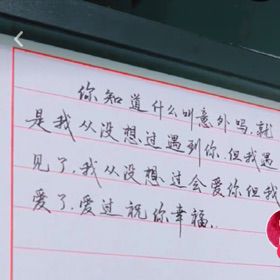 你知道什么叫意外吗，就
是我从没想过遇到你，但我遇
见了，我从没想过会爱你但我
爱了，爱过祝你幸福..